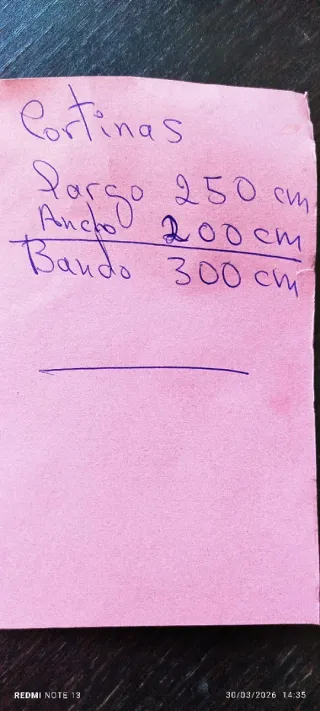 Cortinas
Largo 250 cm
Ancho 200 cm
Bando 300 cm
REDMI NOTE 13
30/03/2026 14:35